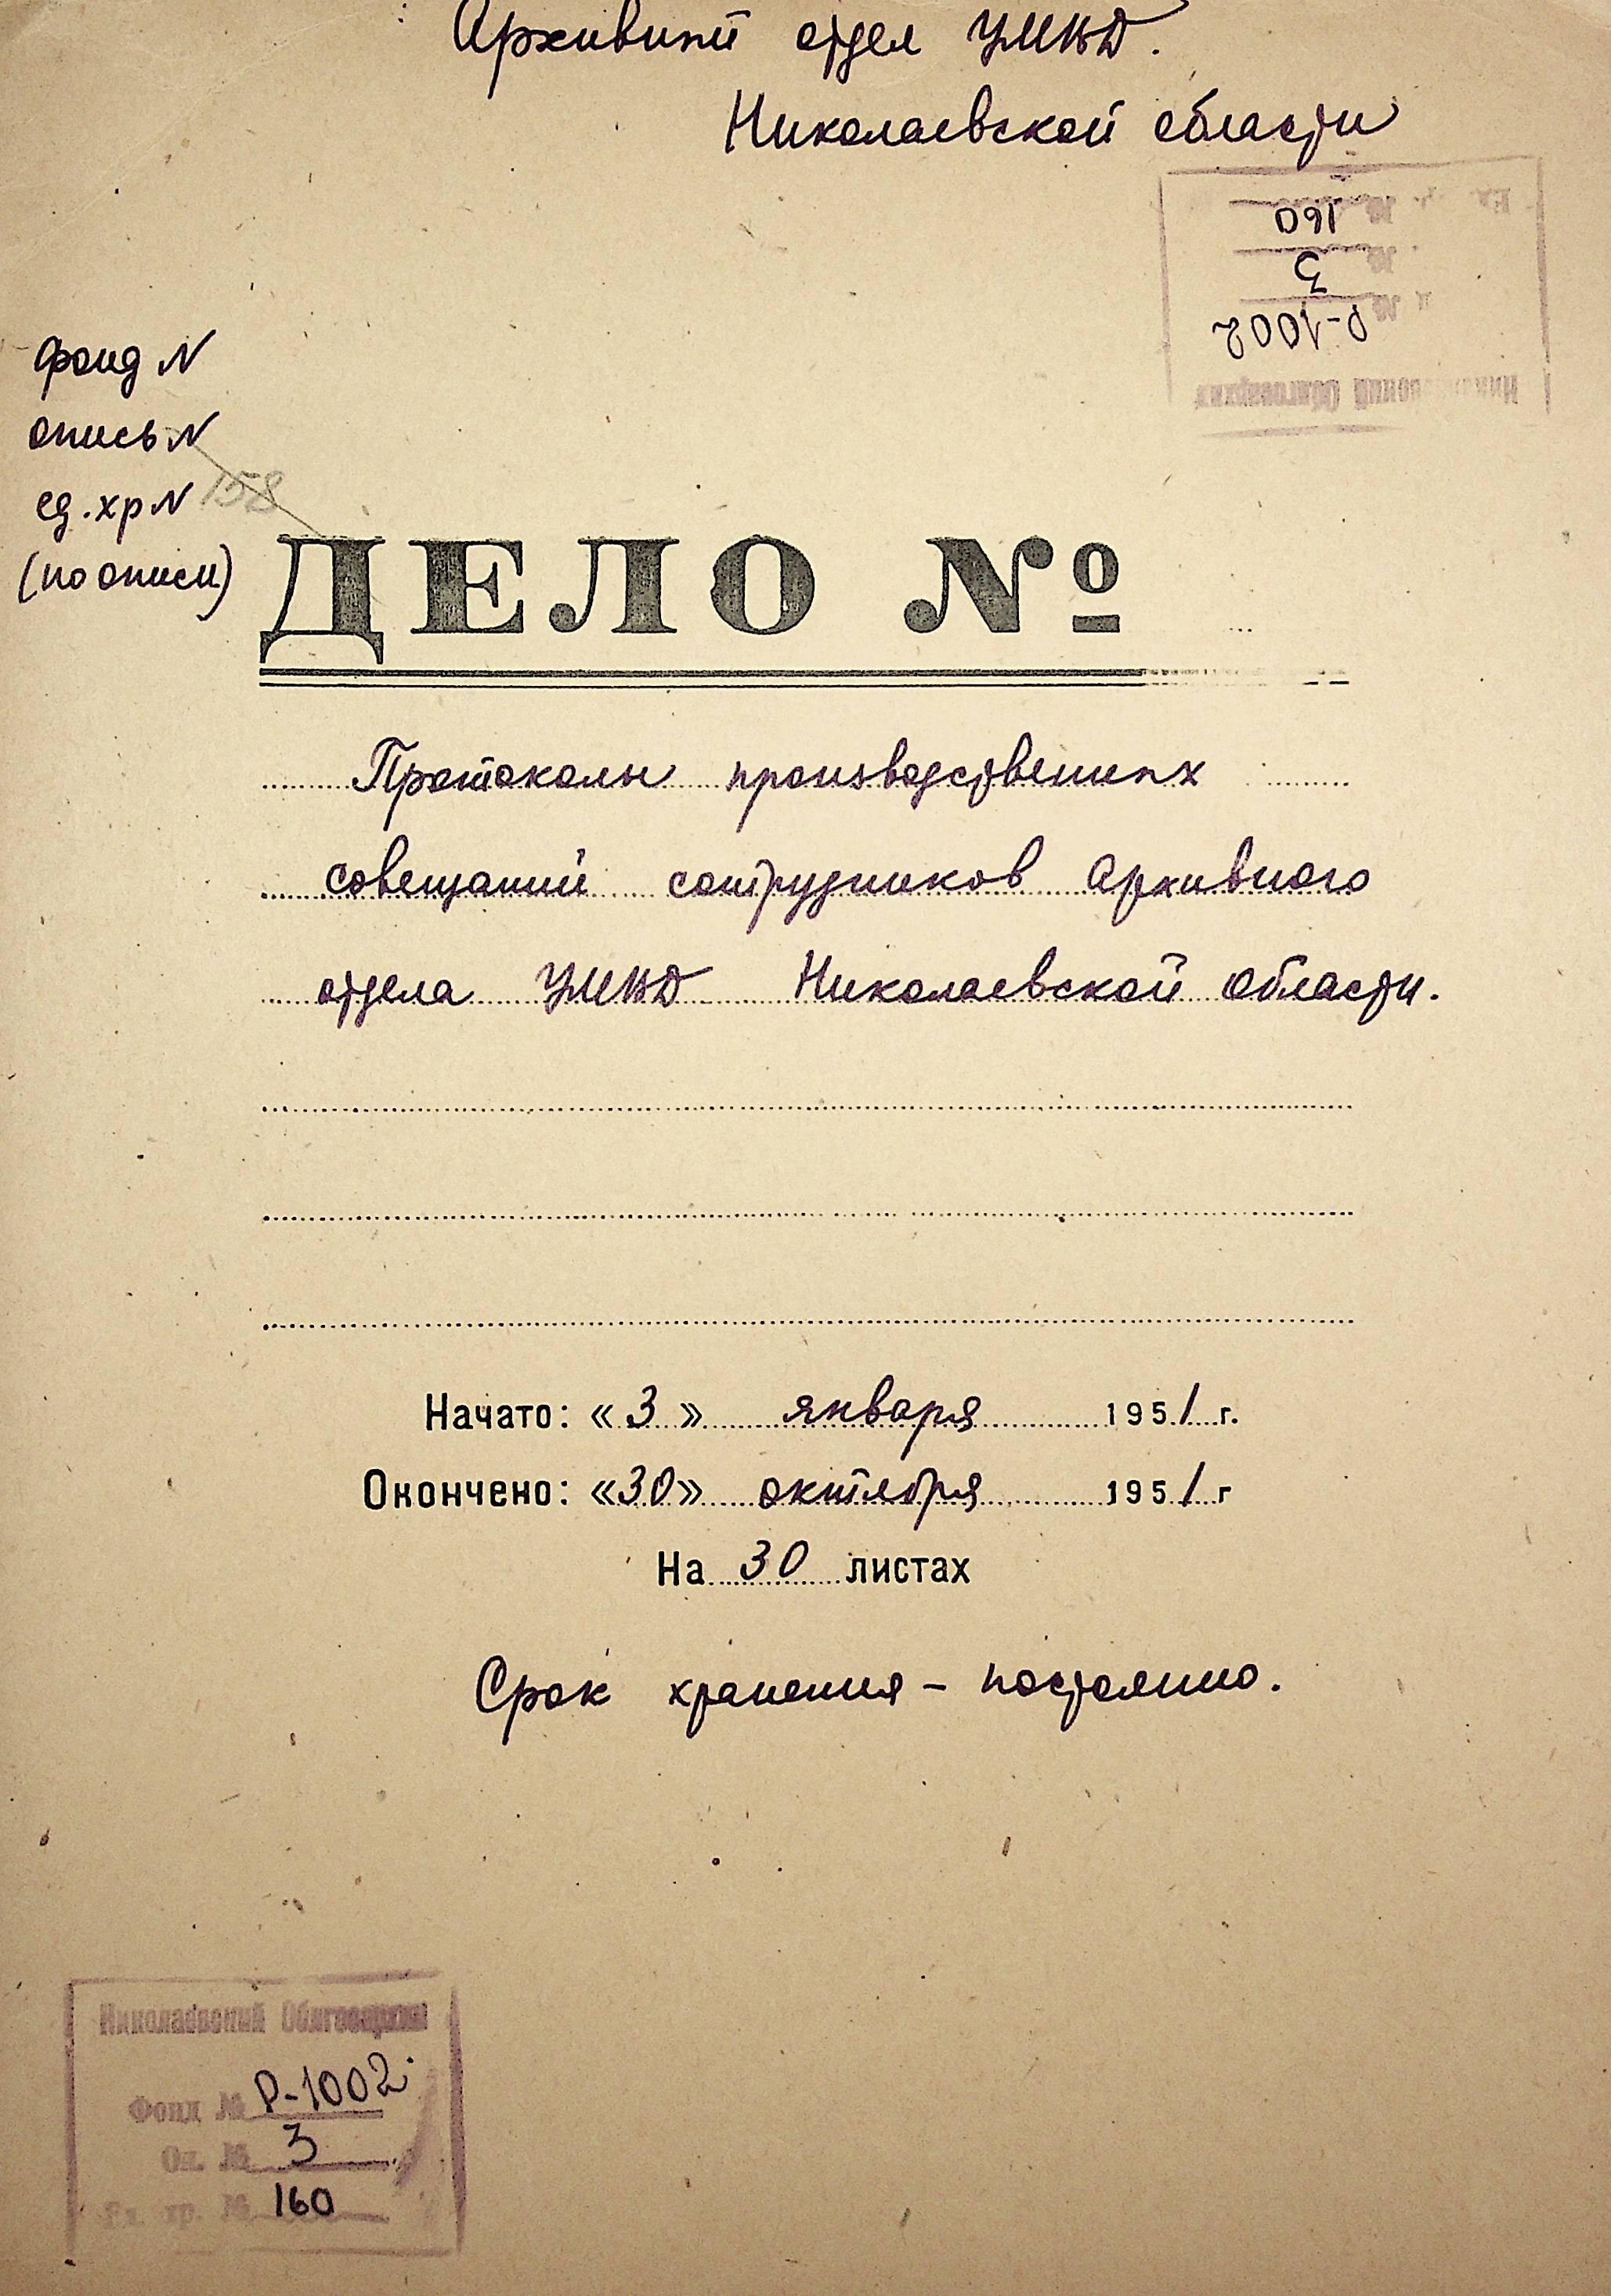 Архивный отдел УМВД.
Николаевской области
Николаевский Облгосархив
№ Р-1002
№ 3
Ед. хр. № 160
фонд N
опись N
ед. хр N 158
(по описи)
ДЕЛО №
Протоколы производственных
совещаний сотрудников Архивного
отдела УМВД Николаевской области.
Начато: «3» января 1951 г.
Окончено: «30» октября 1951 г
На 30 листах
Срок хранения - постоянно.
Николаевский Облгосархив
Фонд № Р-1002
Оп. № 3
Ед. хр. № 160